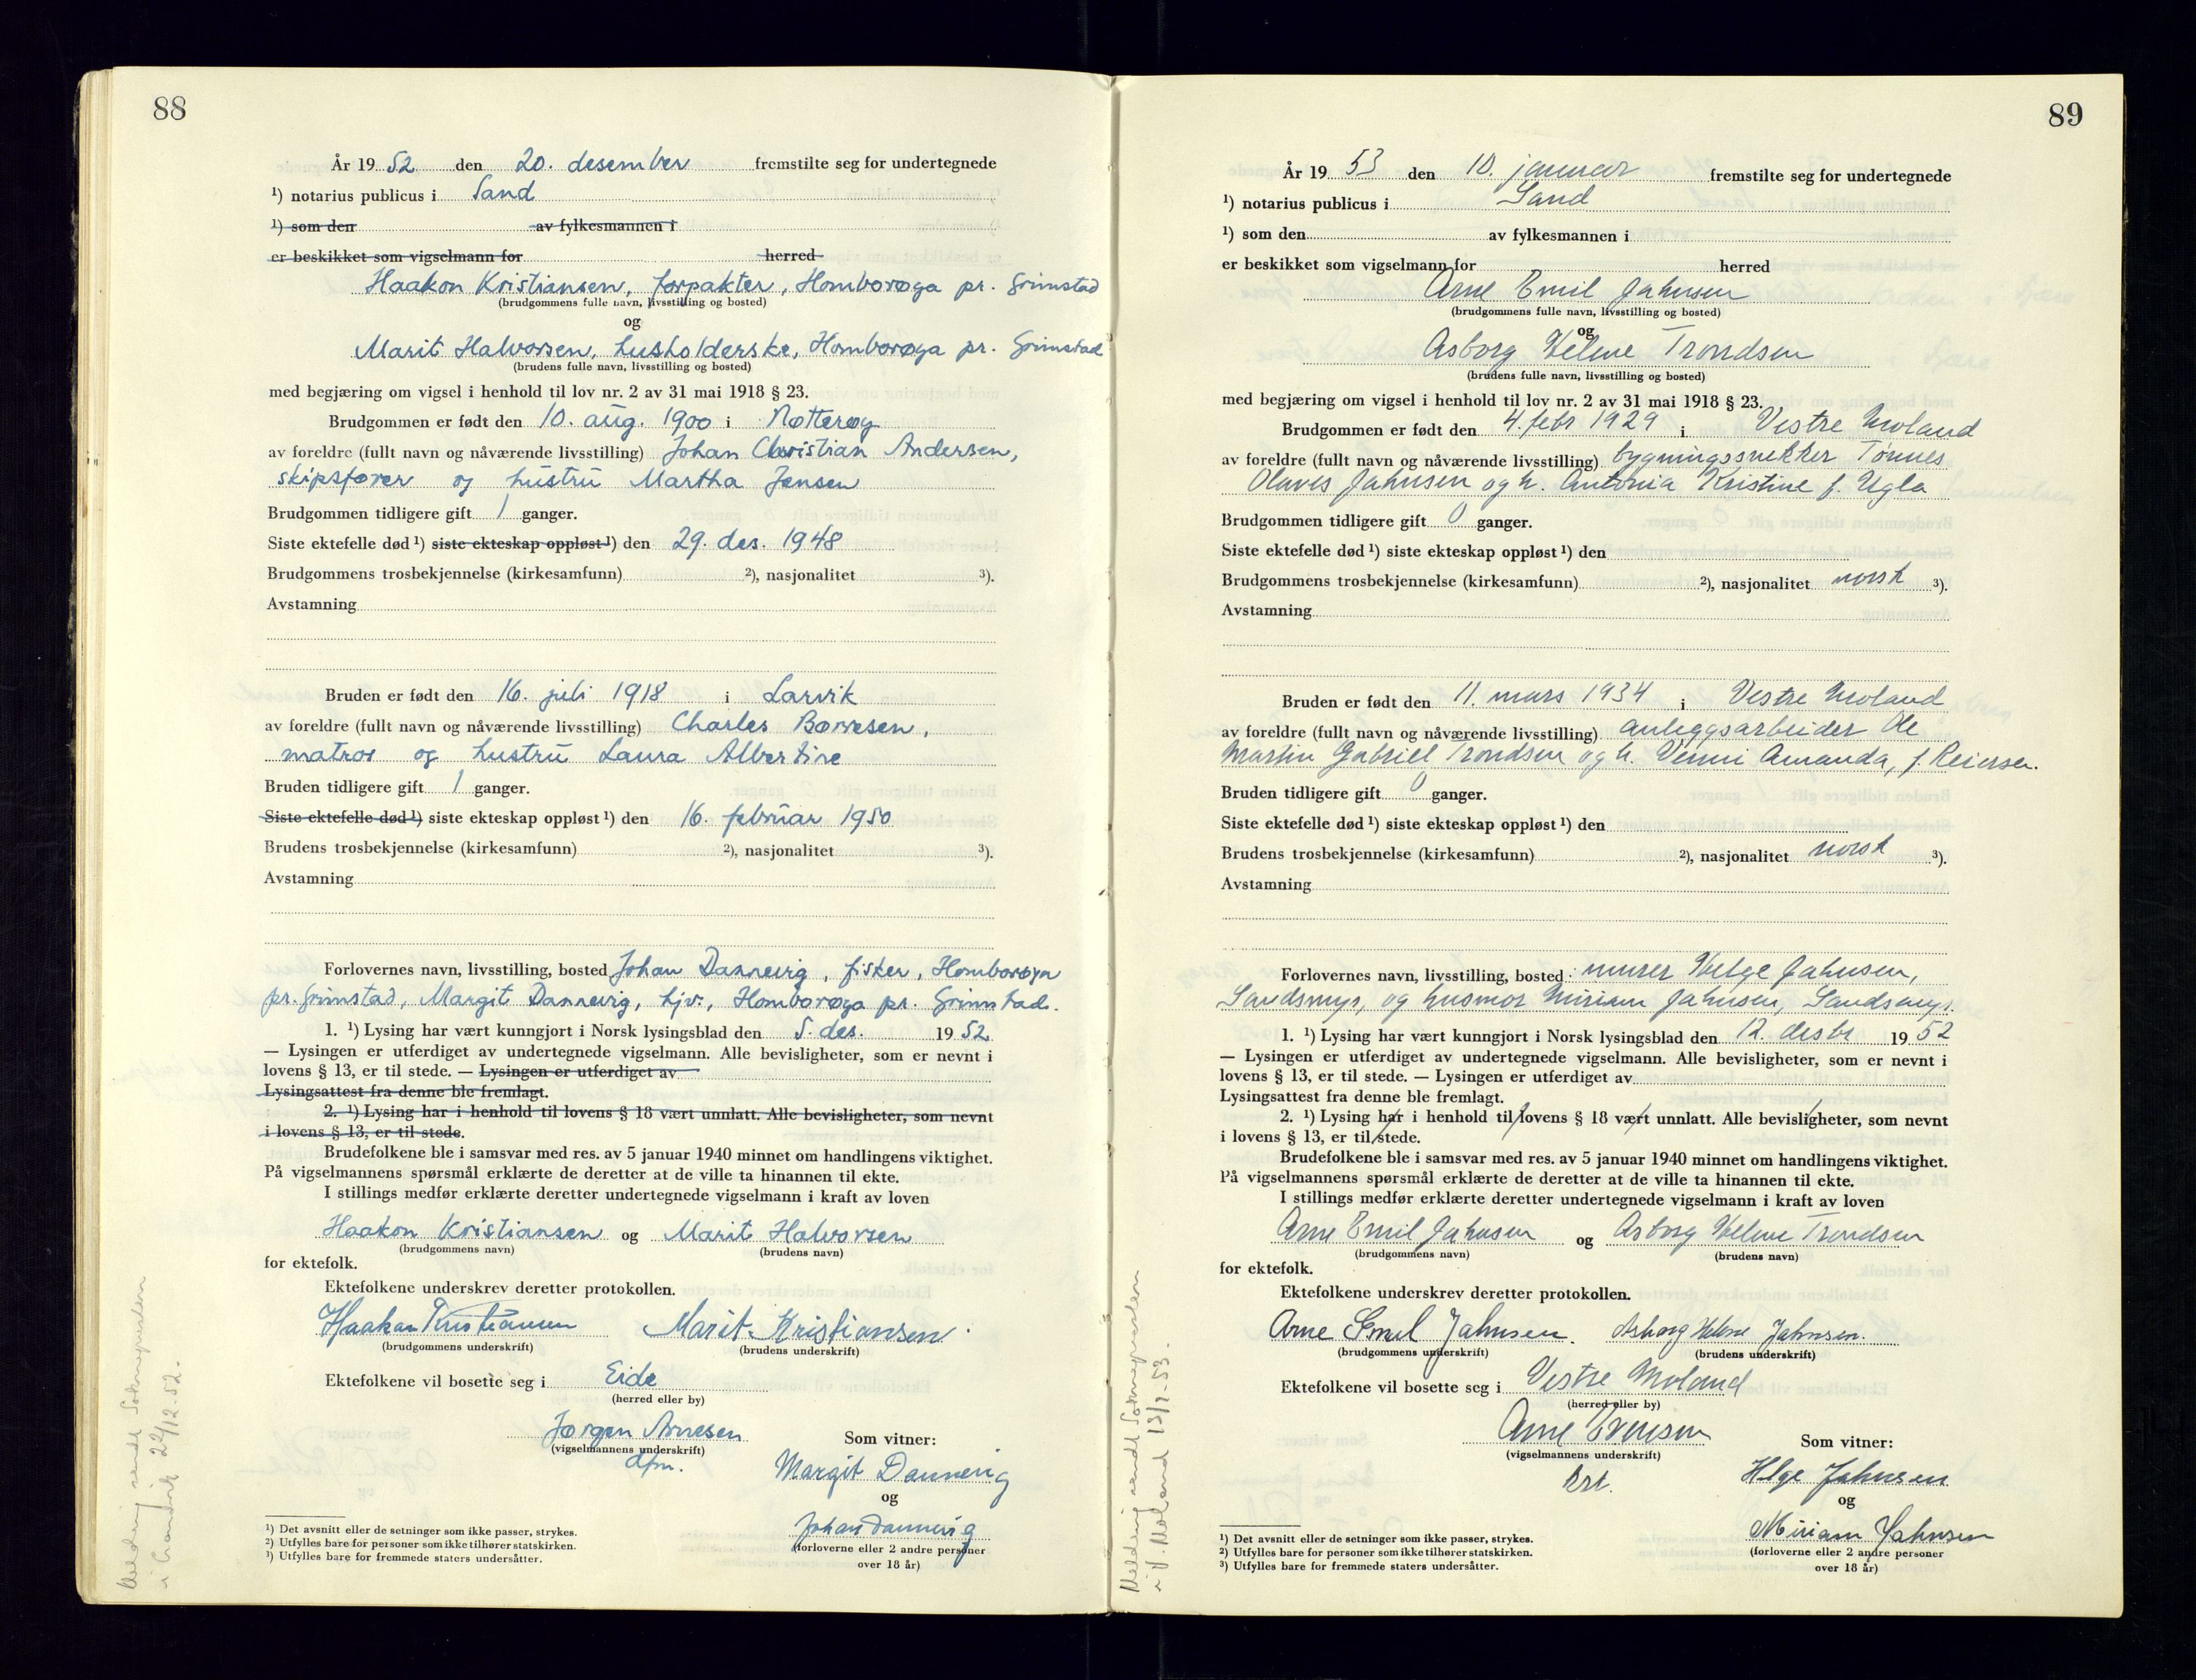 88
År 1952 den 20. desember fremstilte seg for undertegnede
¹) notarius publicus i Sand
¹) som den av fylkesmannen i
er beskikket som vigselmann for herred
Haakon Kristiansen, forpakter, Homborøya pr. Grimstad
(brudgommens fulle navn, livsstilling og bosted)
og
Marit Halvorsen, husholderske, Homborøya pr. Grimstad
(brudens fulle navn, livsstilling og bosted)
med begjæring om vigsel i henhold til lov nr. 2 av 31 mai 1918 § 23.
Brudgommen er født den 10. aug. 1900 i Nøtterøy
av foreldre (fullt navn og nåværende livsstilling) Johan Christian Andersen,
skipsfører og hustru Martha Jensen
Brudgommen tidligere gift 1 ganger.
Siste ektefelle død ¹) siste ekteskap oppløst ¹) den 29. des. 1948
Brudgommens trosbekjennelse (kirkesamfunn) ²), nasjonalitet ³).
Avstamning
Bruden er født den 16. juli 1918 i Larvik
av foreldre (fullt navn og nåværende livsstilling) Charles Børresen,
matros og hustru Laura Albertine
Bruden tidligere gift 1 ganger.
Siste ektefelle død ¹) siste ekteskap oppløst ¹) den 16. februar 1950
Brudens trosbekjennelse (kirkesamfunn) ²), nasjonalitet ³).
Avstamning
Forlovernes navn, livsstilling, bosted Johan Dannevig, fisker, Homborøya
pr. Grimstad, Margit Dannevig, hjv., Homborøya pr. Grimstad.
1. ¹) Lysing har vært kunngjort i Norsk lysingsblad den 5. des. 1952
— Lysingen er utferdiget av undertegnede vigselmann. Alle bevisligheter, som er nevnt i
lovens § 13, er til stede. — Lysingen er utferdiget av
Lysingsattest fra denne ble fremlagt.
2. ¹) Lysing har i henhold til lovens § 18 vært unnlatt. Alle bevisligheter, som nevnt
i lovens § 13, er til stede.
Brudefolkene ble i samsvar med res. av 5 januar 1940 minnet om handlingens viktighet.
På vigselmannens spørsmål erklærte de deretter at de ville ta hinannen til ekte.
I stillings medfør erklærte deretter undertegnede vigselmann i kraft av loven
Haakon Kristiansen og Marit Halvorsen
(brudgommens navn) (brudens navn)
for ektefolk.
Ektefolkene underskrev deretter protokollen.
Haakon Kristiansen Marit Kristiansen.
(brudgommens underskrift) (brudens underskrift)
Ektefolkene vil bosette seg i Eide
(herred eller by)
Jørgen Arnesen
(vigselmannens underskrift)
dfm.
Som vitner:
Margit Dannevig
og
Johan Dannevig
(forloverne eller 2 andre personer
over 18 år)
¹) Det avsnitt eller de setninger som ikke passer, strykes.
²) Utfylles bare for personer som ikke tilhører statskirken.
³) Utfylles bare for fremmede staters undersåtter.
Melding sendt Soknepresten
i 22/12-52.
89
År 1953 den 10. januar fremstilte seg for undertegnede
¹) notarius publicus i Sand
¹) som den av fylkesmannen i
er beskikket som vigselmann for herred
Arne Emil Jahnsen
(brudgommens fulle navn, livsstilling og bosted)
og
Asborg Helene Trondsen
(brudens fulle navn, livsstilling og bosted)
med begjæring om vigsel i henhold til lov nr. 2 av 31 mai 1918 § 23.
Brudgommen er født den 4. febr 1929 i Vestre Moland
av foreldre (fullt navn og nåværende livsstilling) bygningssnekker Tønnes
Olaves Jahnsen og h. Antonia Kristine f. Ugla
Brudgommen tidligere gift 0 ganger.
Siste ektefelle død ¹) siste ekteskap oppløst ¹) den
Brudgommens trosbekjennelse (kirkesamfunn) ²), nasjonalitet norsk ³).
Avstamning
Bruden er født den 11. mars 1934 i Vestre Moland
av foreldre (fullt navn og nåværende livsstilling) anleggsarbeider Ole
Martin Gabriel Trondsen og h. Venni Amanda, f. Reiersen.
Bruden tidligere gift 0 ganger.
Siste ektefelle død ¹) siste ekteskap oppløst ¹) den
Brudens trosbekjennelse (kirkesamfunn) ²), nasjonalitet norsk ³).
Avstamning
Forlovernes navn, livsstilling, bosted: murer Helge Jahnsen,
Sandsmyr, og husmor Miriam Jahnsen, Sandsmyr.
1. ¹) Lysing har vært kunngjort i Norsk lysingsblad den 12. desbr 1952
— Lysingen er utferdiget av undertegnede vigselmann. Alle bevisligheter, som er nevnt i
lovens § 13, er til stede. — Lysingen er utferdiget av
Lysingsattest fra denne ble fremlagt.
2. ¹) Lysing har i henhold til lovens § 18 vært unnlatt. Alle bevisligheter, som nevnt
i lovens § 13, er til stede.
Brudefolkene ble i samsvar med res. av 5 januar 1940 minnet om handlingens viktighet.
På vigselmannens spørsmål erklærte de deretter at de ville ta hinannen til ekte.
I stillings medfør erklærte deretter undertegnede vigselmann i kraft av loven
Arne Emil Jahnsen og Asborg Helene Trondsen
(brudgommens navn) (brudens navn)
for ektefolk.
Ektefolkene underskrev deretter protokollen.
Arne Emil Jahnsen. Asborg Helene Jahnsen.
(brudgommens underskrift) (brudens underskrift)
Ektefolkene vil bosette seg i Vestre Moland
(herred eller by)
Arne Evensen
(vigselmannens underskrift)
Som vitner:
Helge Jahnsen
og
Miriam Jahnsen
(forloverne eller 2 andre personer
over 18 år)
¹) Det avsnitt eller de setninger som ikke passer, strykes.
²) Utfylles bare for personer som ikke tilhører statskirken.
³) Utfylles bare for fremmede staters undersåtter.
Melding sendt Soknepresten
i V. Moland 13/1-53.